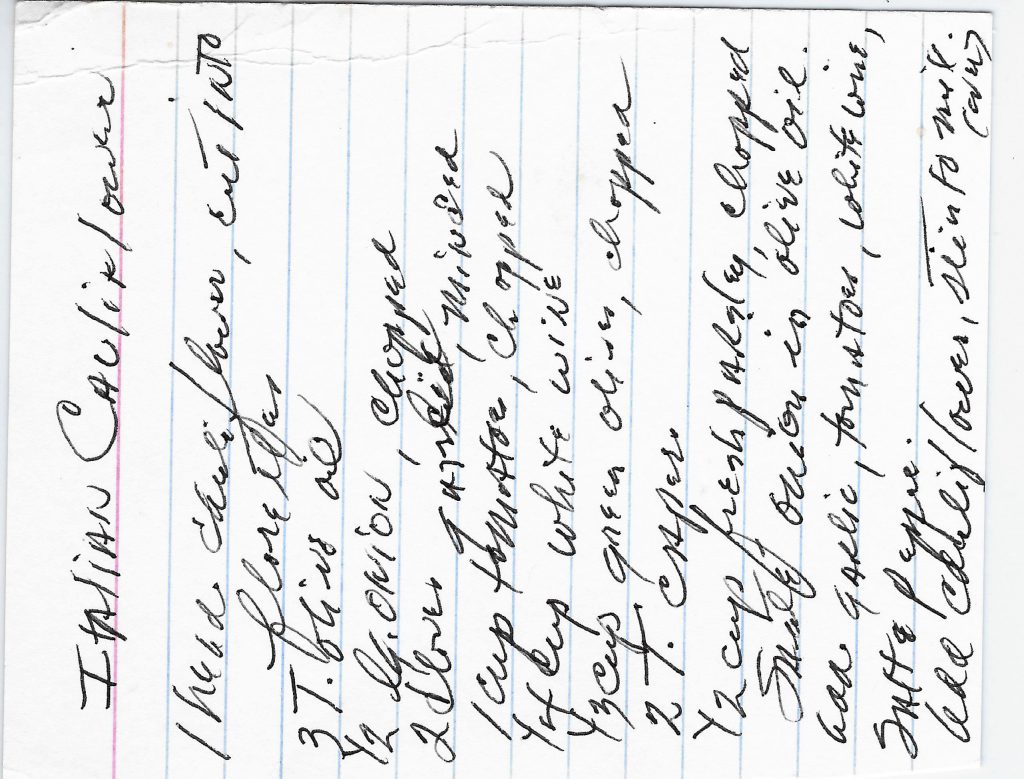 ITALIAN CAULIFlower
1 head cauliflower, cut INTO
florettes
3 T. olive oil
1/2 lg. ONION, chopped
2 cloves garlic, minced
1 cup tomatoe, chopped
1/4 cup white wine
1/3 cup green olives, chopped
2 T. capers
1/2 cup fresh parsley, chopped
Sauté onion in olive oil.
add garlic, tomatoes, white wine,
salt & pepper.
add cauliflower, stir to mix.
(over)